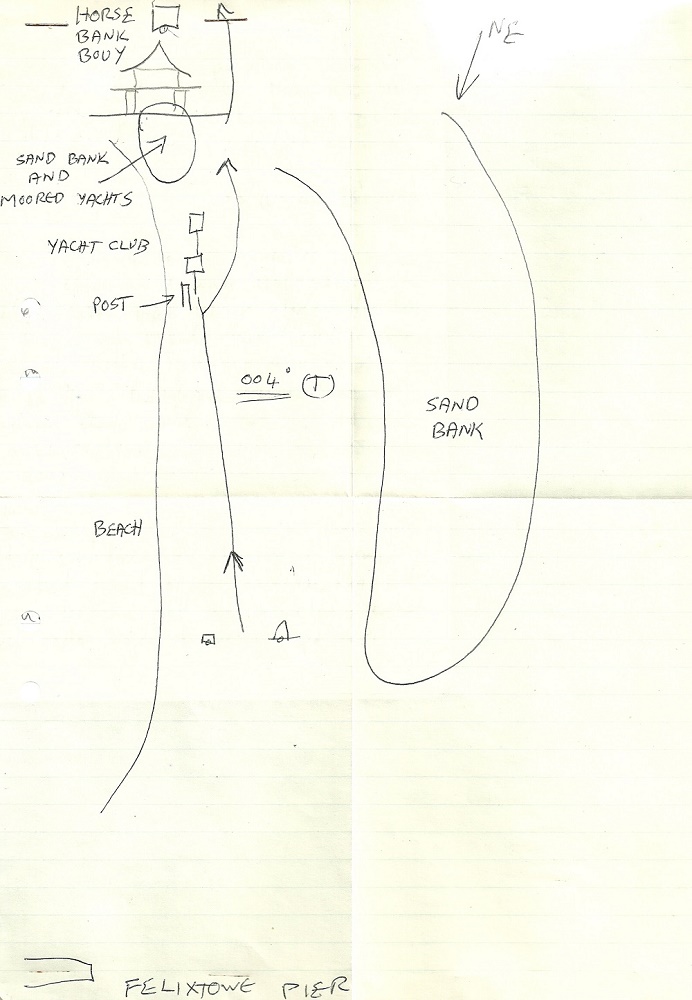 HORSE
BANK
BOUY
NE
SAND BANK
AND
MOORED YACHTS
YACHT CLUB
POST
004° (T)
SAND
BANK
BEACH
FELIXTOWE PIER